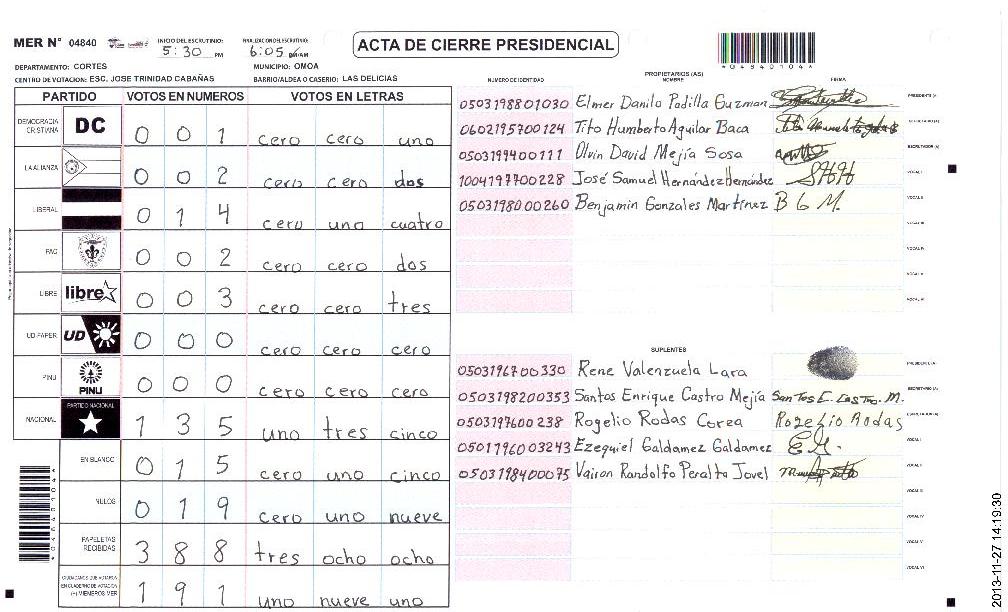 MER N° 04840
INICIO DEL ESCRUTINIO: 5:30 PM
FINALIZACION DEL ESCRUTINIO: 6:05
ACTA DE CIERRE PRESIDENCIAL
*04840104*
DEPARTAMENTO: CORTES
MUNICIPIO: OMOA
CENTRO DE VOTACION: ESC. JOSE TRINIDAD CABAÑAS
BARRIO/ALDEA O CASERIO: LAS DELICIAS
PARTIDO VOTOS EN NUMEROS VOTOS EN LETRAS
DEMOCRACIA CRISTIANA DC 0 0 1 cero cero uno
LA ALIANZA 0 0 2 cero cero dos
LIBERAL 0 1 4 cero uno cuatro
PAC 0 0 2 cero cero dos
LIBRE libre 0 0 3 cero cero tres
UD-FAPER UD 0 0 0 cero cero cero
PINU PINU 0 0 0 cero cero cero
NACIONAL PARTIDO NACIONAL 1 3 5 uno tres cinco
EN BLANCO 0 1 5 cero uno cinco
NULOS 0 1 9 cero uno nueve
PAPELETAS RECIBIDAS 3 8 8 tres ocho ocho
CIUDADANOS QUE VOTARON EN CUADERNO DE VOTACION (+) MIEMBROS MER 1 9 1 uno nueve uno
NUMERO DE IDENTIDAD PROPIETARIOS (AS) NOMBRE FIRMA
0503198801030 Elmer Danilo Padilla Guzman PRESIDENTE (A)
0602195700124 Tito Humberto Aguilar Baca SECRETARIO (A)
0503199400111 Olvin David Mejía Sosa ESCRUTADOR (A)
1004197700228 José Samuel Hernández Hernández SHH VOCAL I
0503198000260 Benjamin Gonzales Martínez B G M. VOCAL II
VOCAL III
VOCAL IV
VOCAL V
VOCAL VI
SUPLENTES
0503196700330 Rene Valenzuela Lara PRESIDENTE (A)
0503198200353 Santos Enrique Castro Mejía Santos E. Castro. M. SECRETARIO (A)
0503197600238 Rogelio Rodas Corea Rogelio Rodas ESCRUTADOR (A)
0501196003243 Ezequiel Galdamez Galdamez E G. VOCAL I
0503198400075 Vairon Randolfo Peralta Jovel VOCAL II
VOCAL III
VOCAL IV
VOCAL V
VOCAL VI
*04840104*
2013-11-27 14:19:30